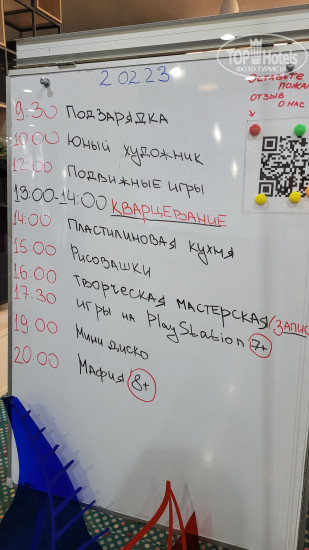 TOP Hotels
ФОТО ТУРИСТА
2 2023
ОСТАВЬТЕ
ПОЖАЛ
ОТЗЫВ
О НАС
9:30 ПОДЗАРЯДКА
10:00 ЮНЫЙ ХУДОЖНИК
12:00 ПОДВИЖНЫЕ ИГРЫ
13:00-14:00 КВАРЦЕВАНИЕ
14:00 ПЛАСТИЛИНОВАЯ КУХНЯ
15:00 РИСОВАШКИ
16:00 ТВОРЧЕСКАЯ МАСТЕРСКАЯ/ЗАПИС
17:30 ИГРЫ НА PlayStation 7+
19:00 МИНИ ДИСКО
20:00 МАФИЯ 8+